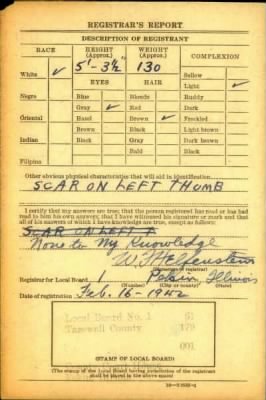 REGISTRAR'S REPORT
DESCRIPTION OF REGISTRANT
RACE HEIGHT (Approx.) WEIGHT (Approx.) COMPLEXION
White ✓ 5'-3½" 130 Sallow
EYES HAIR Light ✓
Negro Blue Blonde Ruddy
Gray ✓ Red Dark
Oriental Hazel Brown ✓ Freckled
Brown Black Light brown
Indian Black Gray Dark brown
Bald Black
Filipino
Other obvious physical characteristics that will aid in identification
SCAR ON LEFT THUMB
I certify that my answers are true; that the person registered has read or has had
read to him his own answers; that I have witnessed his signature or mark and that
all of his answers of which I have knowledge are true, except as follows:
SCAR ON LEFT T
None to My Knowledge
(Signature of registrar)
Registrar for Local Board 1 Pekin, Illinois
(Number) (City or county) (State)
Date of registration Feb. 16-1942
Local Board No. 1 61
Tazewell County 179
001
(STAMP OF LOCAL BOARD)
(The stamp of the Local Board having jurisdiction of the registrant
shall be placed in the above space.)